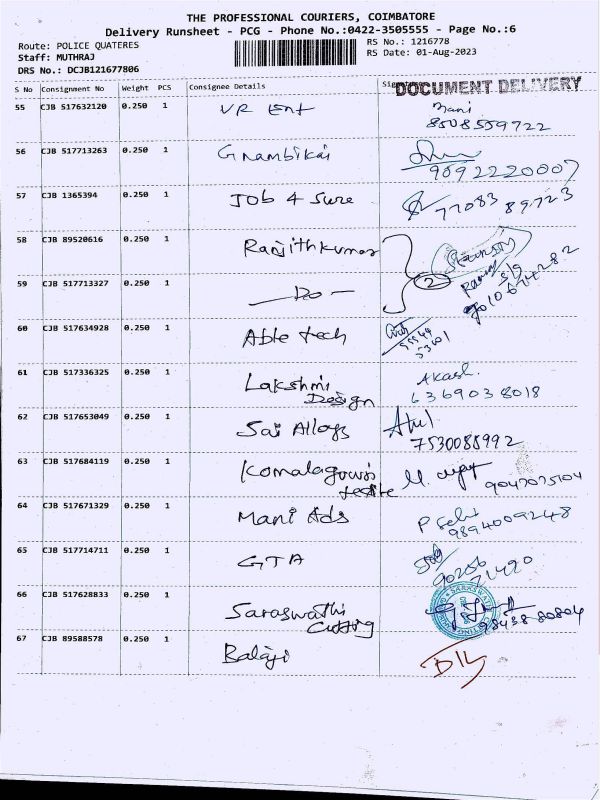 THE PROFESSIONAL COURIERS, COIMBATORE
Delivery Runsheet - PCG - Phone No.:0422-3505555 - Page No.:6
Route: POLICE QUATERES
RS No.: 1216778
Staff: MUTHRAJ
RS Date: 01-Aug-2023
DRS No.: DCJB121677806
S No Consignment No Weight PCS Consignee Details
DOCUMENT DELIVERY
55 CJB 517632120 0.250 1 VR Ent Mani
8508559722
56 CJB 517713263 0.250 1 Gnambikai
9092220007
57 CJB 1365394 0.250 1 Job 4 Sure 77083 89723
58 CJB 89520616 0.250 1 Ranjithkumar
59 CJB 517713327 0.250 1 — Do — 2
60 CJB 517634928 0.250 1 Able tech
61 CJB 517336325 0.250 1 Lakshmi Design Akash.
6369038018
62 CJB 517653049 0.250 1 Sai Alloys Atul
7530088992
63 CJB 517684119 0.250 1
64 CJB 517671329 0.250 1 Mani Ads P Selvi
9894009248
65 CJB 517714711 0.250 1 GTA
90256
71420
66 CJB 517628833 0.250 1 Saraswathi Cutting
98438 80804
67 CJB 89588578 0.250 1 Balaji